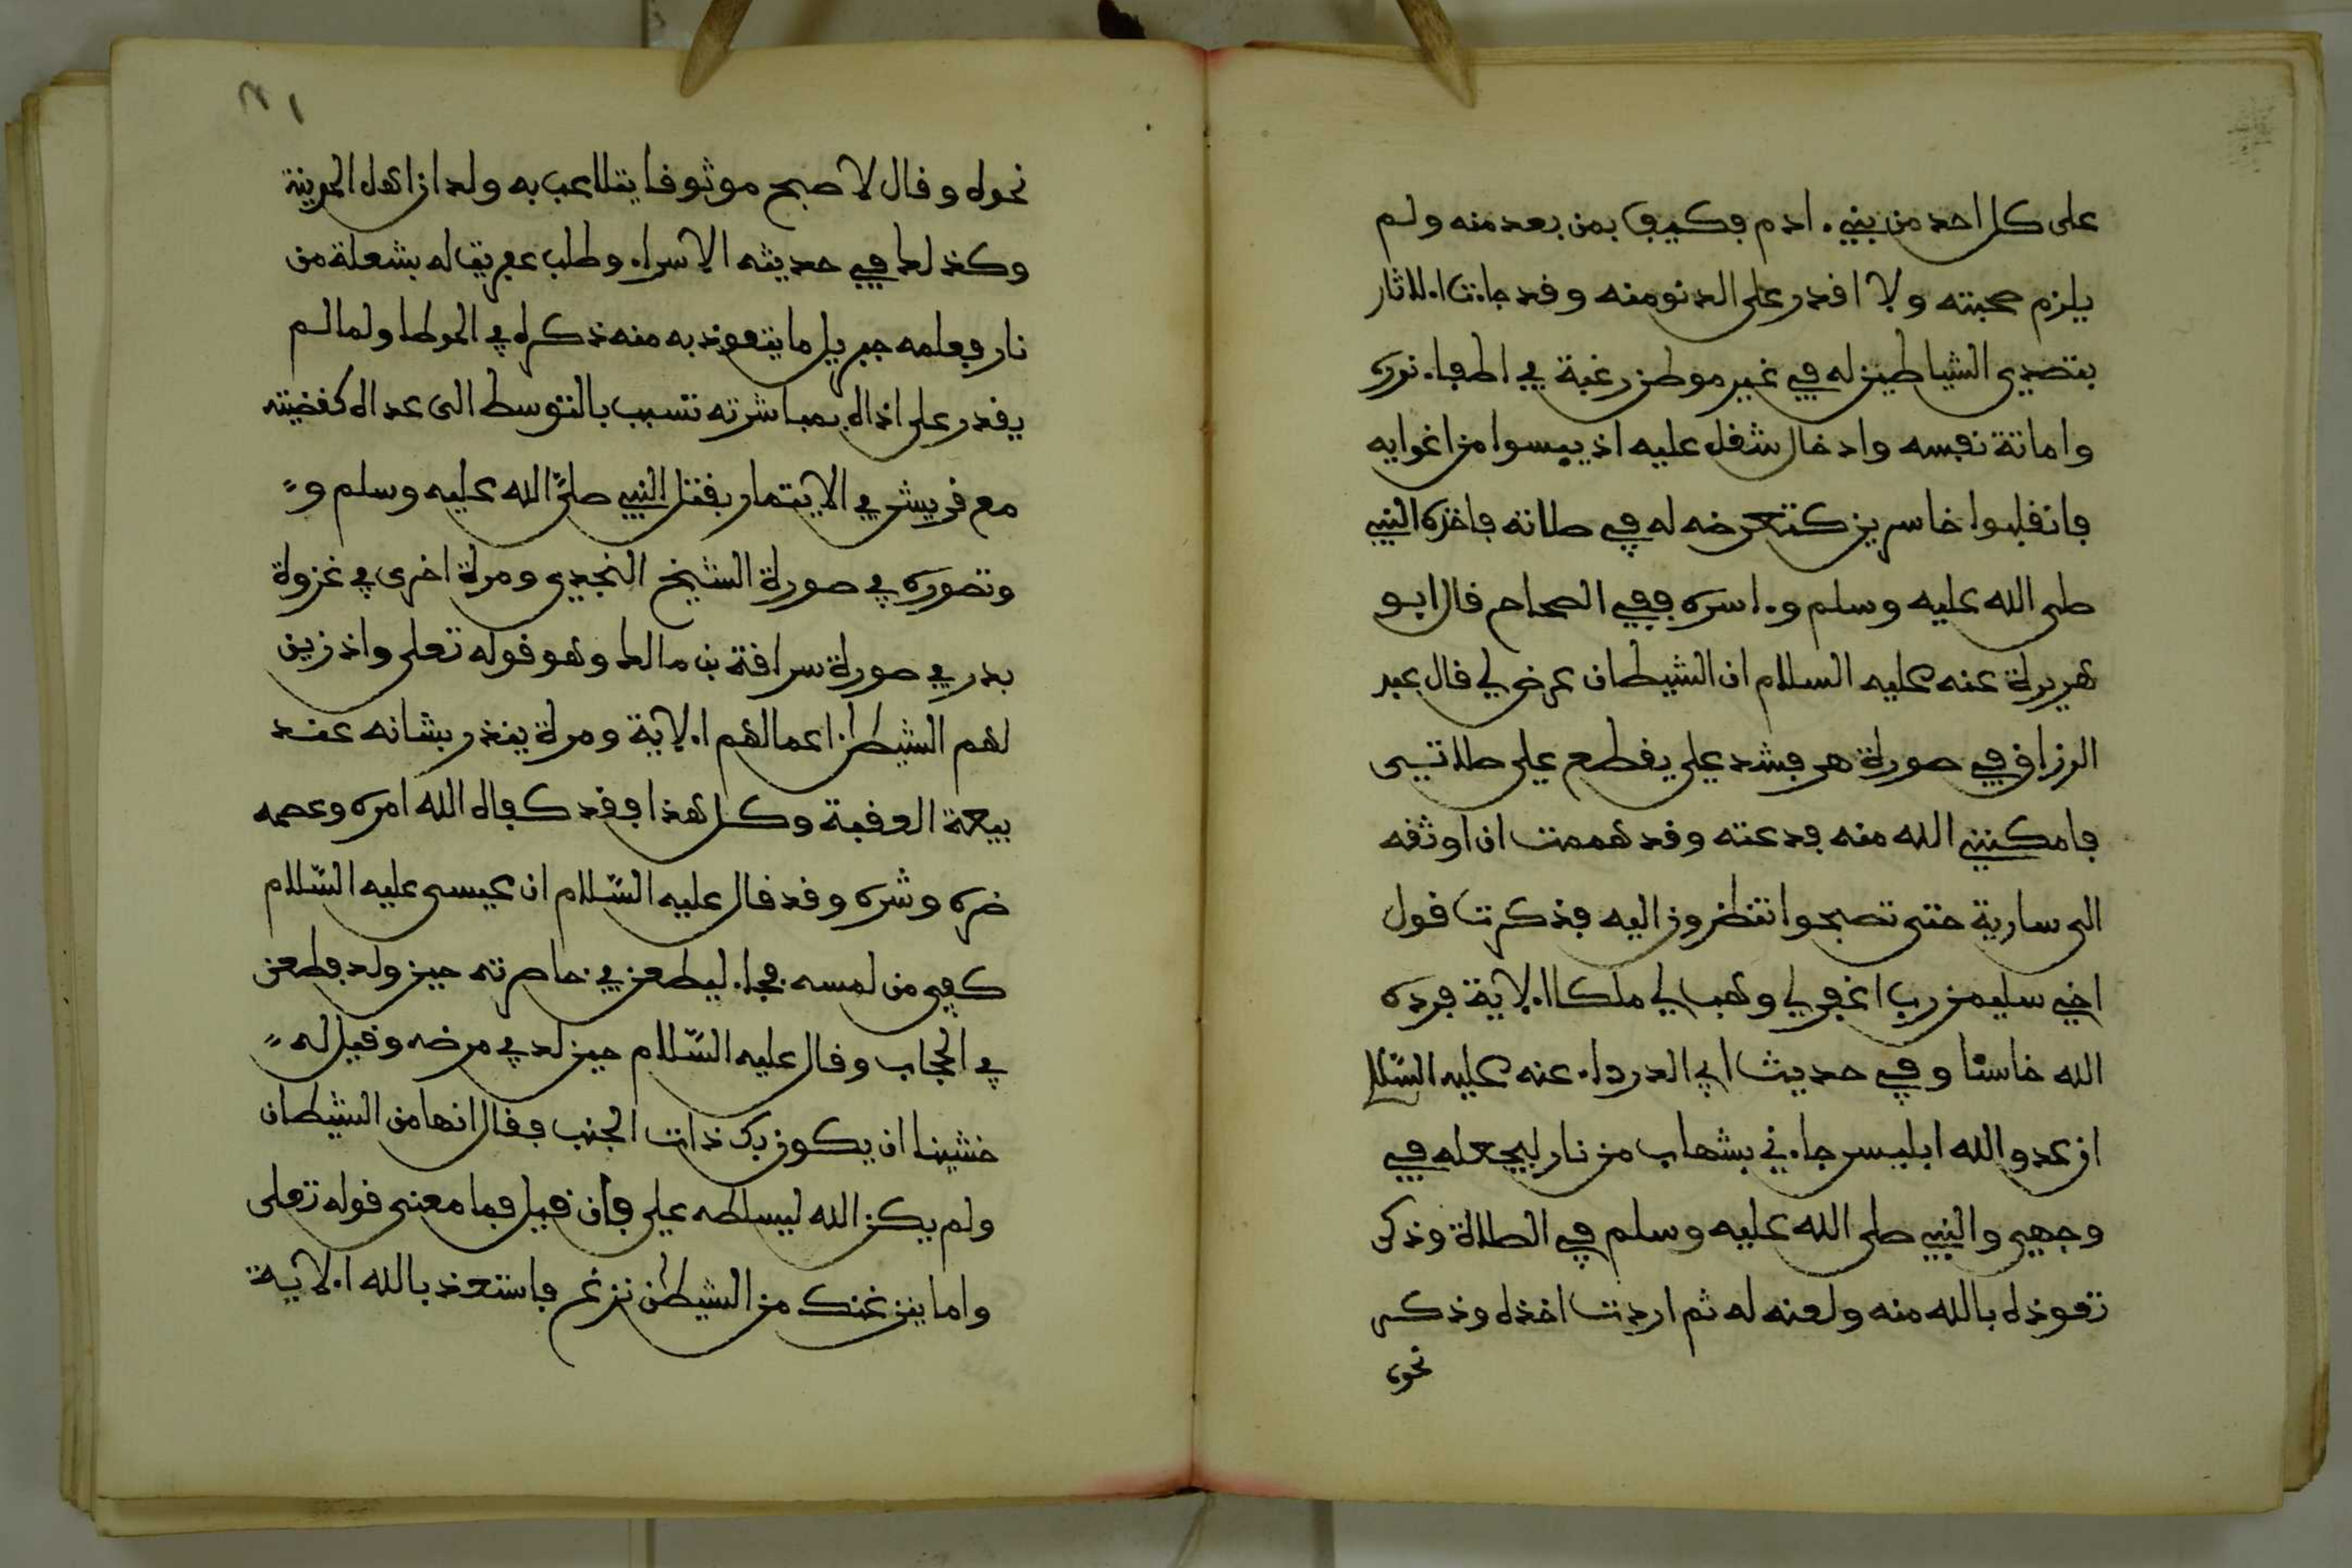 على كل احد من بني ءادم فكيف بمن بعد منه ولم
يلزم صحبته ولا افدر على الدنو منه وقد جاءت الاثار
بتصدي الشياطين له في غير موطن رغبة في اطفاء نوره
واماتة نفسه وادخال شغل عليه اذ ييسوا من اغوايه
فانقلبوا خاسرين كتعرضه له في صلاته فاخذه النبي
صلى الله عليه وسلم وءاسره ففي الصحاح قال ابو
هريرة عنه عليه السلام ان الشيطان عرض لي قال عبد
الرزاق في صورة هر فشد علي يقطع علي صلاتي
فامكنني الله منه فدعته وقد هممت ان اوثقه
الى سارية حتى تصبحوا تنظرون اليه فذكرت قول
اخي سليمن رب اغفر لي وهب لي ملكا الاية فرده
الله خاسئا وفي حديث ابي الدرداء عنه عليه السلام
ان عدو الله ابليس جاءني بشهاب من نار ليجعله في
وجهي والنبي صلى الله عليه وسلم في الصلاة وذكر
تعوذه بالله منه ولعنه له ثم اردت اخذه وذكر
نحوه
نحوه وقال لاصبح موثوقا يتلاعب به ولدان اهل المدينة
وكذلك في حديثه الاسراء وطلب عفريت له بشعلة من
نار فعلمه جبريل ما يتعوذ به منه ذكره في الموطا ولما لم
يقدر على اذاه بمباشرته تسبب بالتوسط الى عداه كقضيته
مع قريش في الايتمار بقتل النبي صلى الله عليه وسلم و
وتصوره في صورة الشيخ النجدي ومرة اخرى في غزوة
بدر في صورة سراقة بن مالك وهو قوله تعلى واذ زين
لهم الشيطن اعمالهم الاية ومرة ينذر بشانه عند
بيعة العقبة وكل هذا فقد كفاه الله امره وعصمه
ضره وشره وقد قال عليه السلام ان عيسى عليه السلام
كفي من لمسه فجاء ليطعن في خاصرته حين ولد فطعن
في الحجاب وقال عليه السلام حين لد في مرضه وقيل له
خشينا ان يكون بك ذات الجنب فقال انها من الشيطان
ولم يكن الله ليسلطه علي فان قيل فما معنى قوله تعلى
واما ينزغنك من الشيطن نزغ فاستعذ بالله الاية